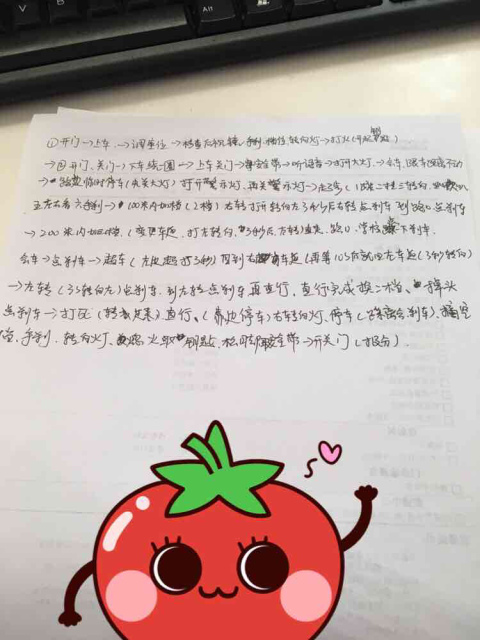 V
B
Alt
①开门→上车→调座位→检查后视镜、手刹、档位、转向灯→打火
→②开门、关门→下车绕一圈→上车关门→安全带→听语音→打开大灯→会车、跟车
→路边临时停车(关关大灯)打开警示灯,再关警示灯→左3秒
手刹→100米内加档(2档)右转打开转向灯3秒后右转点刹车 到路口点刹车
→200米内加档(变更车道,打左转向,3秒后方转)直走,路口、学校下刹车.
会车→点刹车→超车(左边超打3秒)再到右车道(再等10S后就变左车道(3秒转向)
→左转(3S转向左)点刹车.到左转点刹车再直行,直行完成换二档、掉头
点刹车→打死(转过来)直行、(靠边停车)右转向灯、停车(踩离合刹车)、摘空
档、手刹、转向灯、熄火取钥匙、松开安全带→开关门(报分).